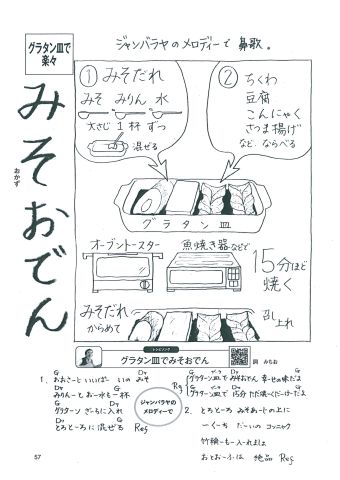 グラタン皿で
楽々
みそおでん
おかず
ジャンバラヤのメロディーで 鼻歌。
① みそだれ
みそ みりん 水
大さじ 1 杯 ずつ
混ぜる
② ちくわ
豆腐
こんにゃく
さつま揚げ
など ならべる
グラタン皿
オーブントースター
魚焼き器などで
15分ほど
焼く
みそだれ
からめて
召し上れ
レシピソング
グラタン皿でみそおでん
詞 みちお
G D7
1. おおさーと いいっぱー いの みそ
G
みりんーと おー水もー杯
G D7
グラターン ざーらに入れ
G
とろとろーに 混ぜる Ref
ジャンバラヤの
メロディーで
Ref
グラタン皿で みそおでん 幸せの味だよ
グラタン皿で 15分
2. とろとろーろ みそあートの上に
コンニャク
竹輪ーもー入れましょ
おとおーふは 絶品 Ref
57